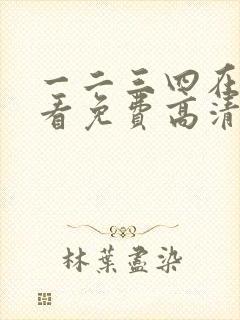 一二三四在
看免费高清
林葉盡染